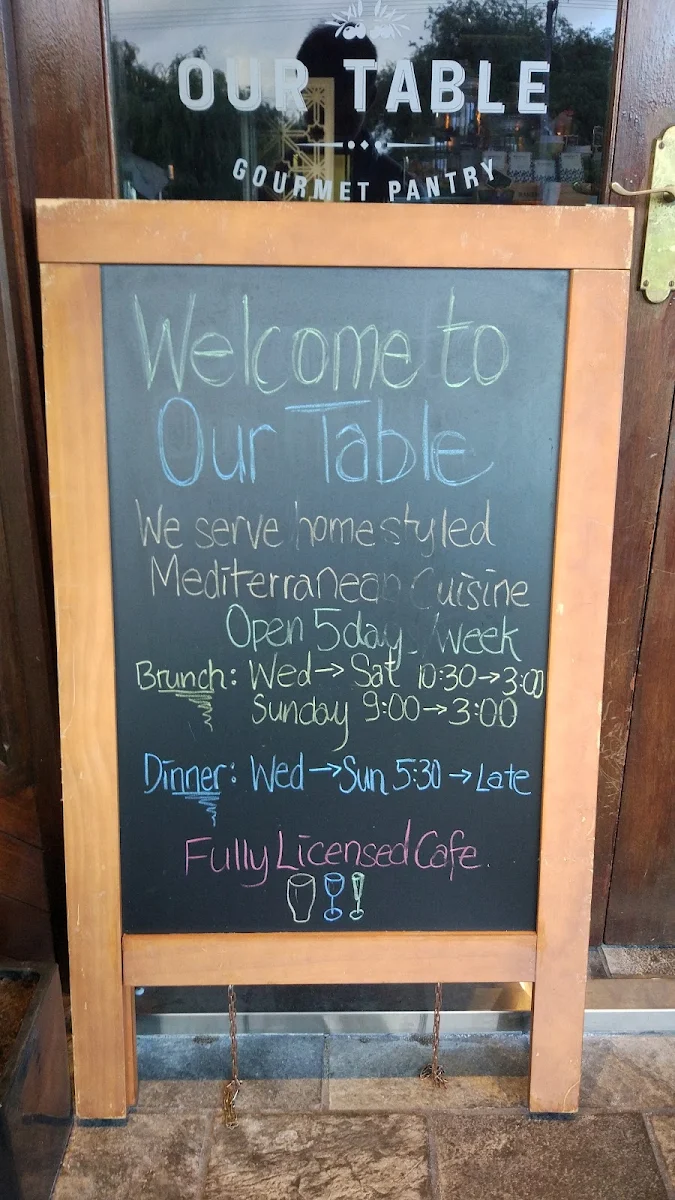 OUR TABLE
GOURMET PANTRY
Welcome to
Our Table
We serve homestyled
Mediterranean Cuisine
Open 5 days/week
Brunch: Wed → Sat 10:30 → 3:00
Sunday 9:00 → 3:00
Dinner: Wed → Sun 5:30 → Late
Fully Licensed Cafe.